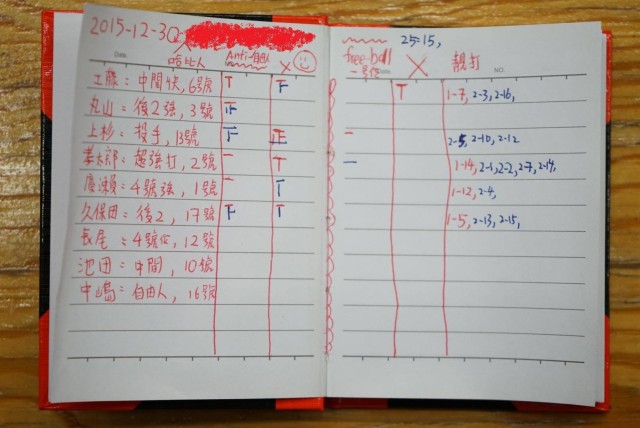 2015-12-30
Date
哈比人 Anti-自由人 X
工藤：中間快, 6號 T 下
丸山：後2強, 3號 正
上杉：投手, 13號 下 正
壽太郎：超強打, 2號 一 T
廣瀨員：4號強, 1號 一 T
久保田：後2, 17號 下 T
長尾：4號位, 12號
池田：中間, 10號
中山嶋：自由人, 16號
25=15,
free-ball X 親打
Date NO.
一號位
T 1-7, 2-3, 2-16,
一 2-5, 2-10, 2-12
一 1-14, 2-1, 2-2, 2-7, 2-14,
1-12, 2-4,
1-5, 2-13, 2-15,